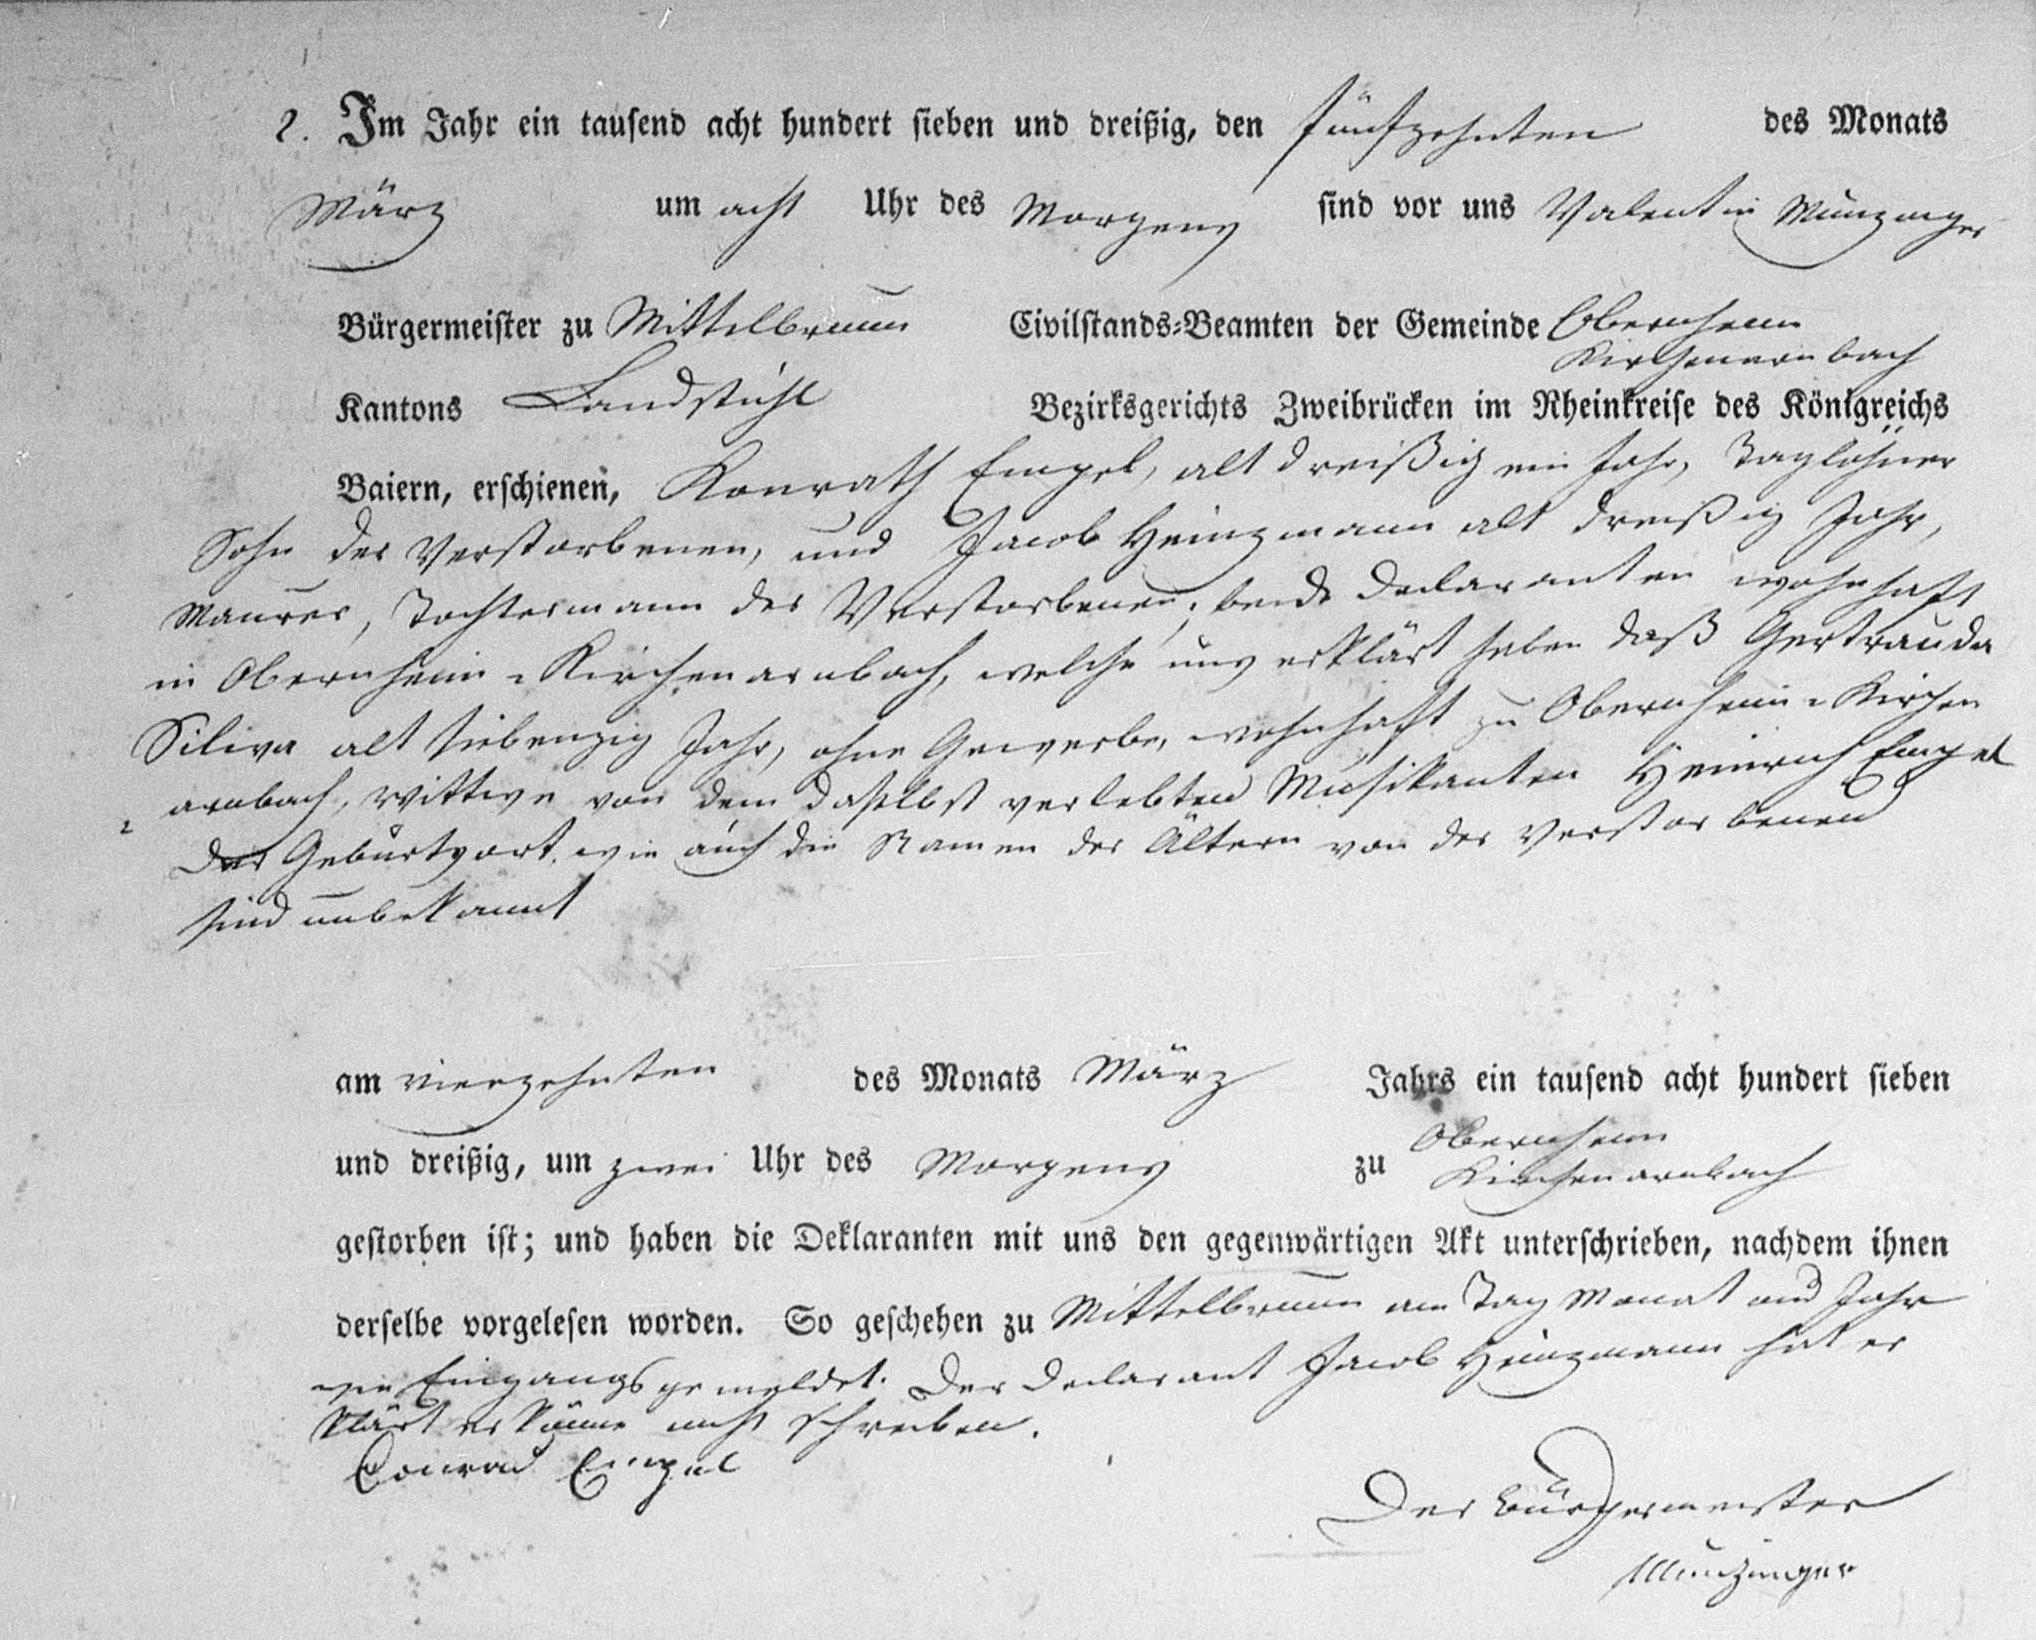 2. Im Jahr ein tausend acht hundert sieben und dreißig, den fünfzehnten des Monats
März um acht Uhr des Morgens sind vor uns Valentin Munzinger
Bürgermeister zu Mittelbrunn Civilstands-Beamten der Gemeinde Obernheim
Kirchenarnbach
Kantons Landstuhl Bezirksgerichts Zweibrücken im Rheinkreise des Königreichs
Baiern, erschienen, Konrath Empel, alt dreißig ein Jahr, Taglöhner
Sohn der Verstorbenen, und Jacob Heinzmann alt dreißig Jahr,
Maurer, Tochtermann der Verstorbenen, beide Declaranten wohnhaft
in Obernheim-Kirchenarnbach, welche uns erklärt haben daß Gertrauda
Siliva alt siebenzig Jahr, ohne Gewerbe, wohnhaft zu Obernheim-Kirchen
arnbach, Wittwe von dem daselbst verlebten Musikanten Heinrich Empel
Der Geburtsort, wie auch die Namen der Ältern von der Verstorbenen
sind unbekannt
am vierzehnten des Monats März Jahrs ein tausend acht hundert sieben
und dreißig, um zwei Uhr des Morgens zu Obernheim
Kirchenarnbach
gestorben ist; und haben die Deklaranten mit uns den gegenwärtigen Akt unterschrieben, nachdem ihnen
derselbe vorgelesen worden. So geschehen zu Mittelbrunn am Tag Monat und Jahr
wie Eingangs gemeldet. Der Declarant Jacob Heinzmann hat er
klärt er könne nicht schreiben.
Conrad Empel
Der Bürgermeister
Munzinger